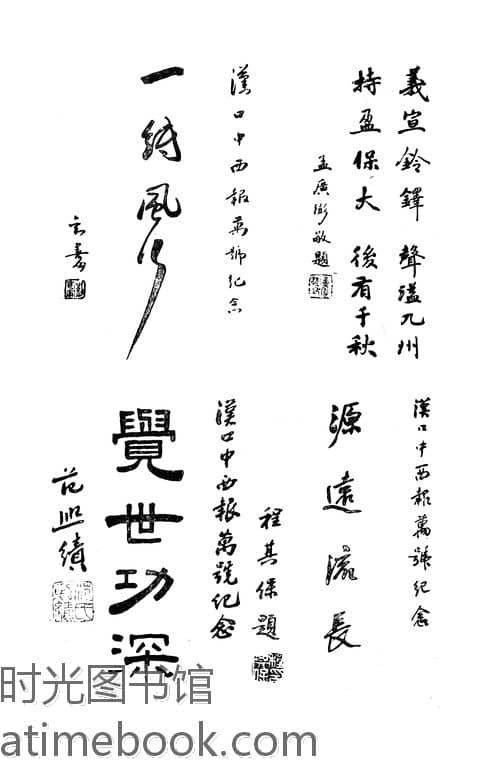 義宣鈴鐸 聲溢九州
持盈保大 後有千秋
孟廣澎敬題
漢口中西報萬號紀念
一紙風行
漢口中西報萬號紀念
源遠流長
程其保題
漢口中西報萬號紀念
覺世功深
范熙績
时光图书馆
atimebook.com